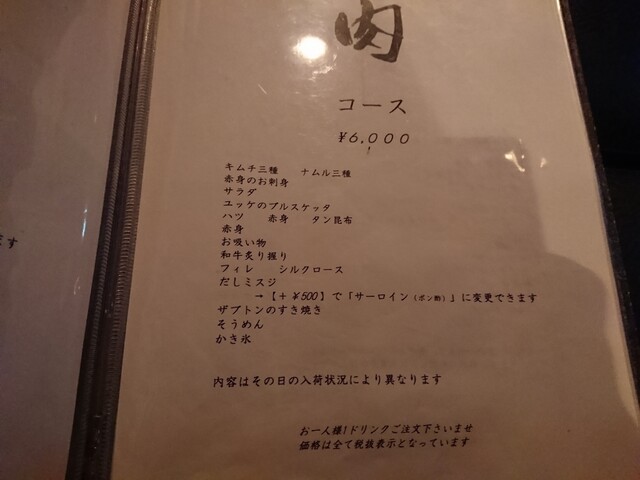 肉
コース
¥6,000
キムチ三種　ナムル三種
赤身のお刺身
サラダ
ユッケのブルスケッタ
ハツ　赤身　タン昆布
赤身
お吸い物
和牛炙り握り
フィレ　シルクロース
だしミスジ
→【+¥500】で「サーロイン（ポン酢）」に変更できます
ザブトンのすき焼き
そうめん
かき氷
内容はその日の入荷状況により異なります
お一人様1ドリンクご注文下さいませ
価格は全て税抜表示となっています
ます